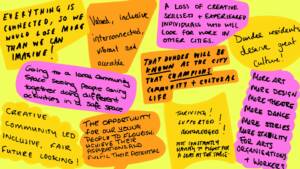 EVERYTHING IS
CONNECTED, SO WE
WOULD LOSE MORE
THAN WE CAN
IMAGINE!
Valued, inclusive
interconnected,
vibrant and
accessible
A LOSS OF CREATIVE
SKILLED + EXPERIENCED
INDIVIDUALS WHO WILL
LOOK FOR WORK IN
OTHER CITIES.
Dundee residents
deserve great
culture!
Going to a local community
Space seeing people coming
together doing different
activities in a safe space
THAT DUNDEE WILL BE
KNOWN AS THE CITY
THAT CHAMPIONS
COMMUNITY + CULTURAL
LIFE
MORE ART
MORE DESIGN
MORE THEATRE
MORE DANCE
MORE STORIES
MORE STABILITY
FOR ARTS
ORGANISATIONS
+ WORKERS
CREATIVE
COMMUNITY LED
INCLUSIVE, FAIR
FUTURE LOOKING!
THE OPPORTUNITY
FOR OUR YOUNG
PEOPLE TO FLOURISH,
ACHIEVE THEIR
ASPIRATIONS AND
FULFIL THEIR POTENTIAL
THRIVING!
SUPPORTED!
ACKNOWLEDGED!
NOT CONSTANTLY
HAVING TO FIGHT FOR
A SEAT AT THE TABLE.